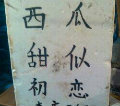 西瓜
甜似
初恋